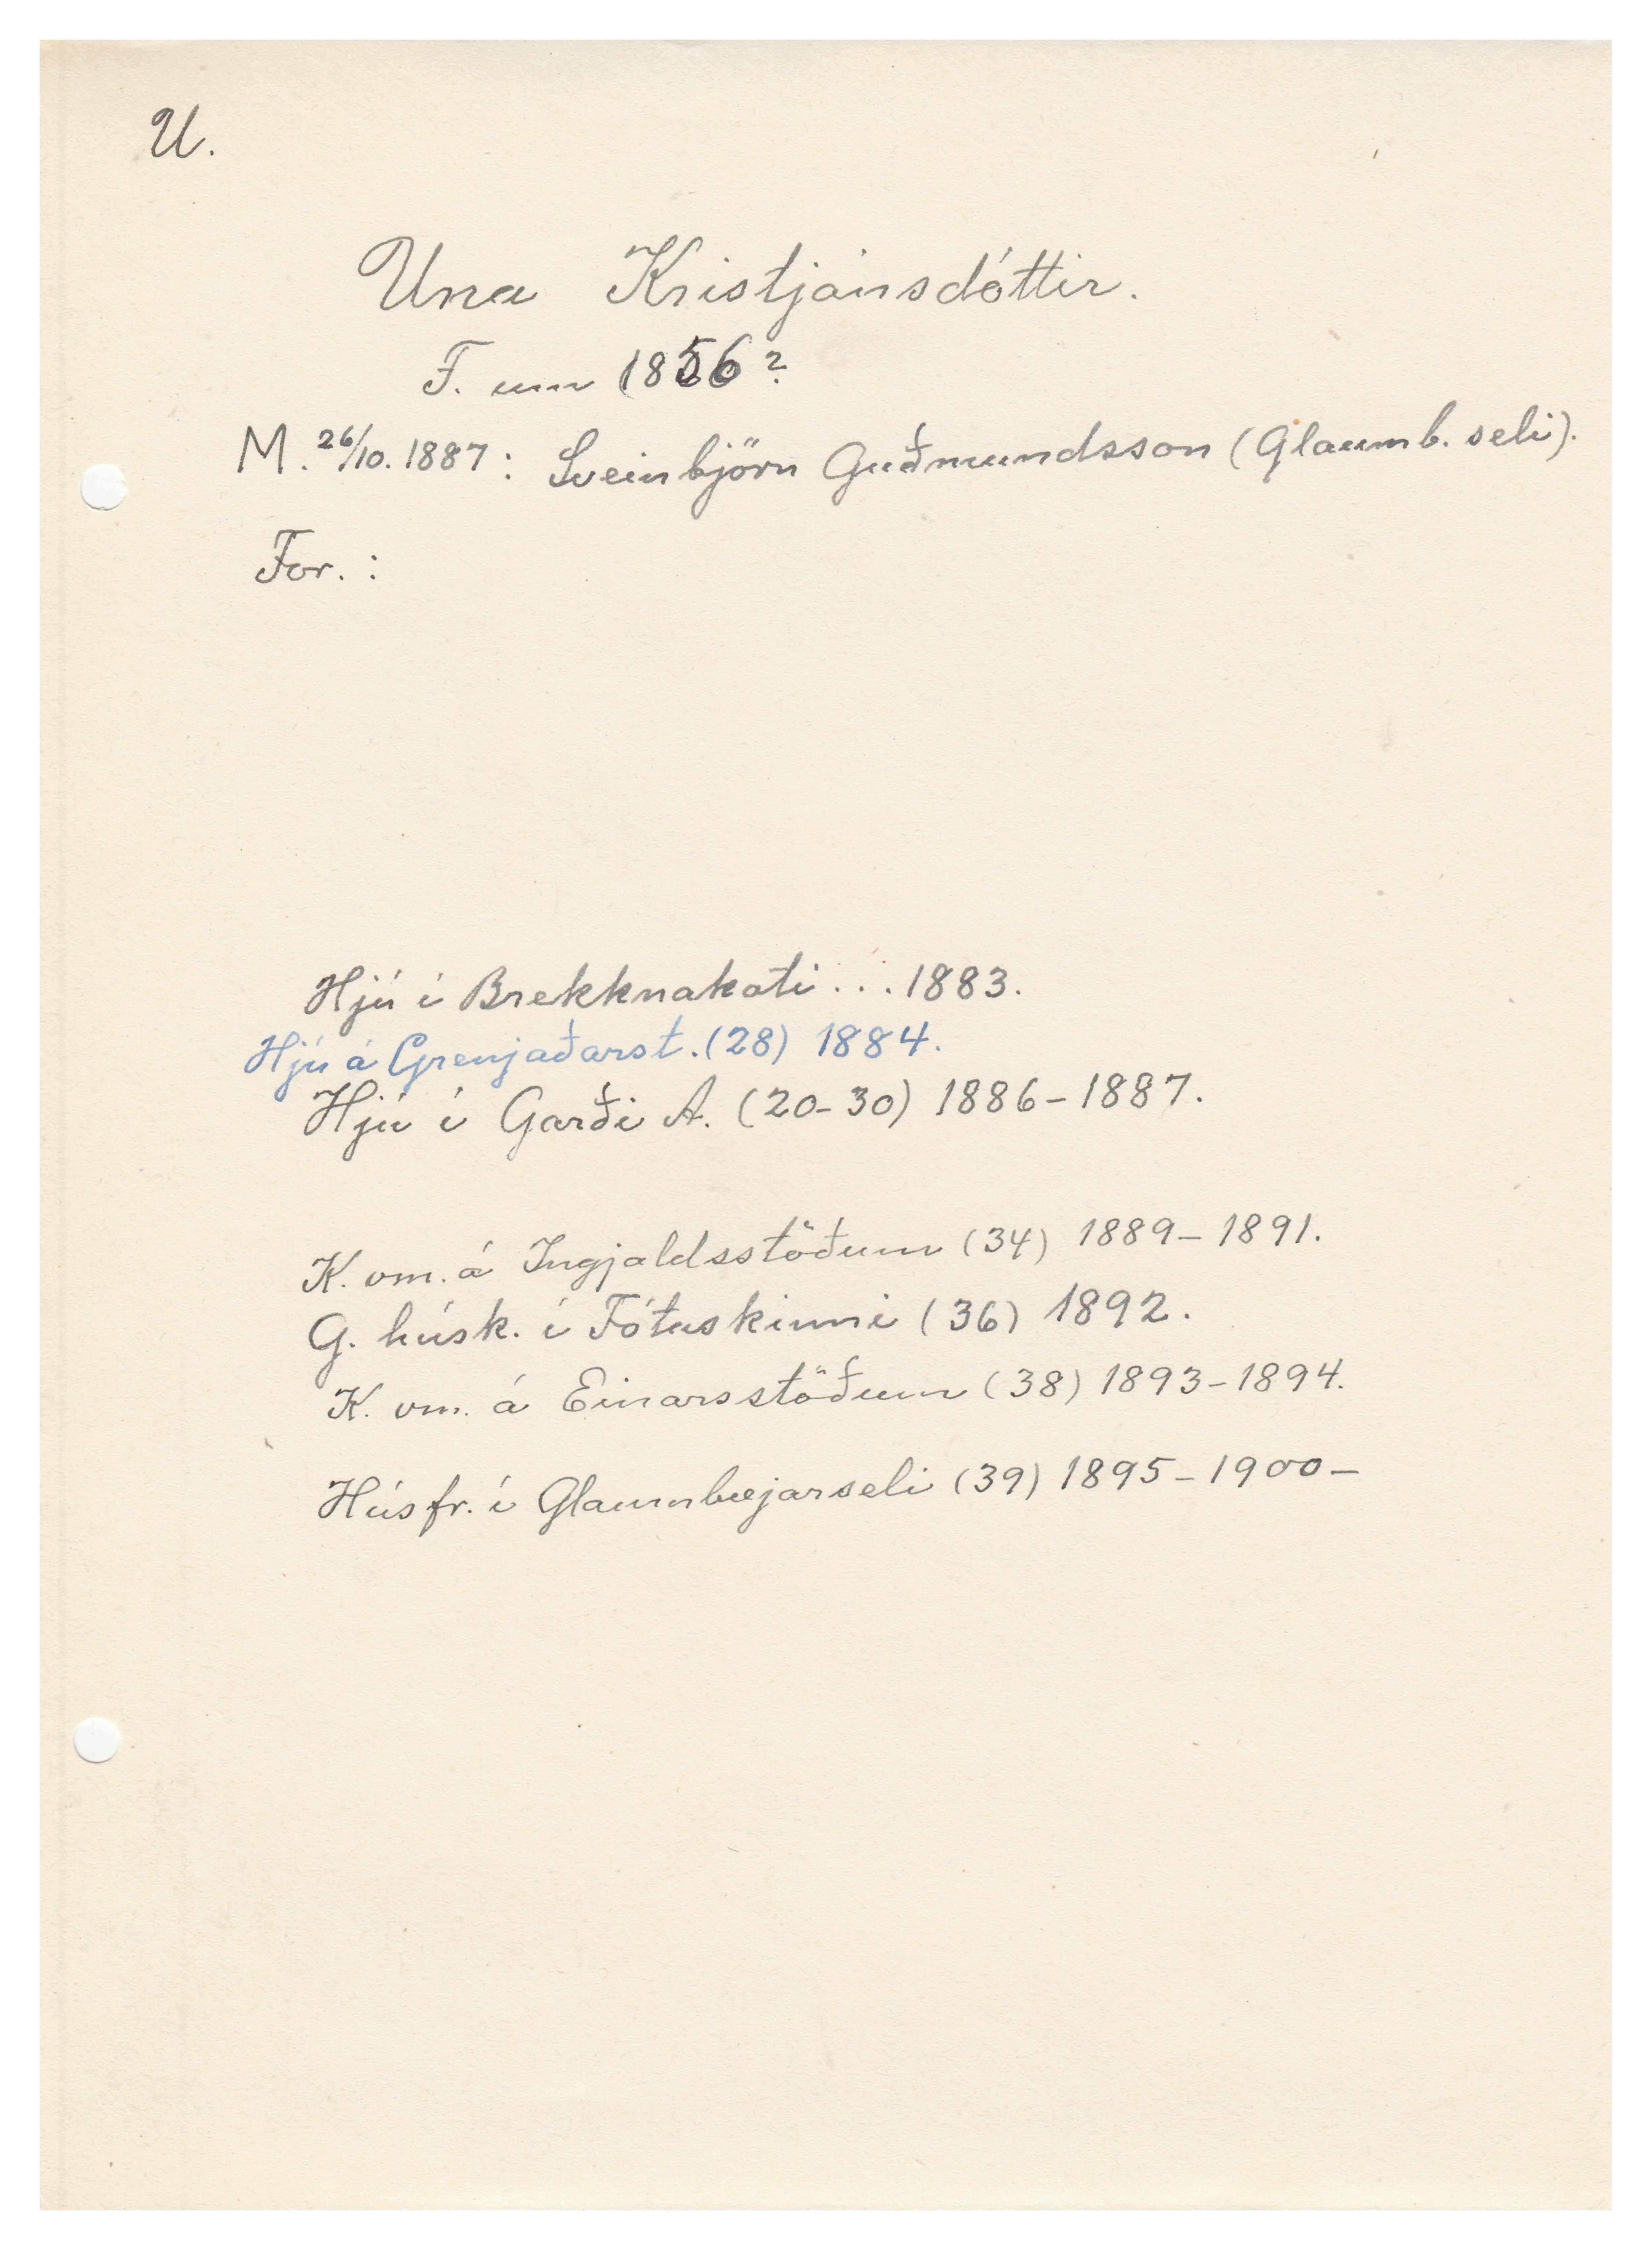 U.
Una Kristjánsdóttir.
F. um 1856?
M. 26/10. 1887: Sveinbjörn Guðmundsson (Glaumb. seli).
For. :
Hjú í Brekknakoti . . . 1883.
Hjú á Grenjaðarst. (28) 1884.
Hjú í Garði A. (20-30) 1886-1887.
K. vm. á Ingjaldsstöðum (34) 1889-1891.
G. húsk. í Fótaskinni (36) 1892.
K. vm. á Einarsstöðum (38) 1893-1894.
Húsfr. í Glaumbæjarseli (39) 1895-1900-